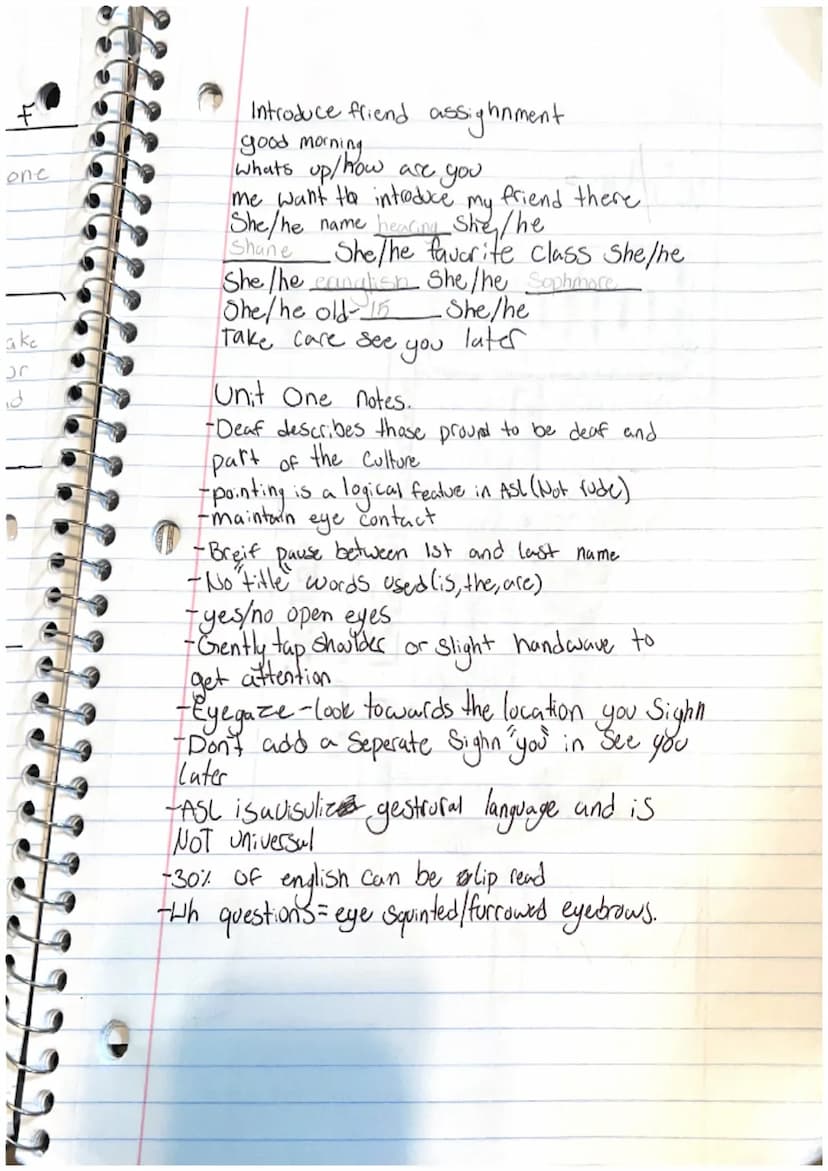 F
one
ake
or
id
Introduce friend assighnment
good morning
whats up/how are you
me want to introduce my friend there
She/he name hearing She/he
Shane She/he favorite class She/he
She/he eanglish She/he Sophmore
She/he old-15 She/he
Take care see you later
Unit One notes.
-Deaf describes those proud to be deaf and
part of the culture
-pointing is a logical featue in ASL (Not rude)
-maintain eye contact
-Breif pause between 1st and last name
-No "title" words used (is, the, are)
-yes/no open eyes
-Gently tap shoulder or slight handwave to
get attention
-Eyegaze-look towards the location you Sighn
-Don't add a Seperate Sighn "you" in See you
later
-ASL is a visulize gestrural language and is
NOT universal
-30% of english can be lip read
-Wh questions = eye squinted/furrowed eyebrows.